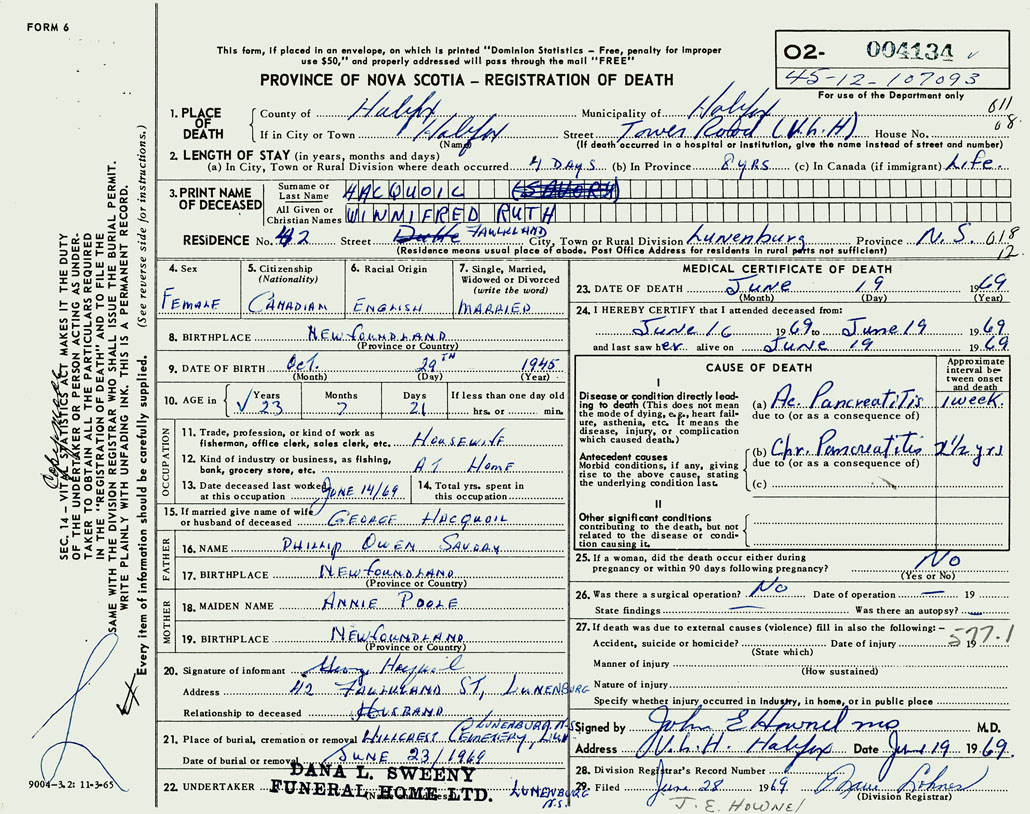 FORM 6
This form, if placed in an envelope, on which is printed "Dominion Statistics – Free, penalty for improper
use $50," and properly addressed will pass through the mail "FREE"
PROVINCE OF NOVA SCOTIA – REGISTRATION OF DEATH
O2- 004134
45-12-107093
For use of the Department only
1. PLACE OF DEATH
County of Halifax Municipality of Halifax 011
If in City or Town Halifax Street Tower Road (V.G.H) House No. 08
(Name) (If death occurred in a hospital or institution, give the name instead of street and number)
2. LENGTH OF STAY (in years, months and days)
(a) In City, Town or Rural Division where death occurred 4 DAYS (b) In Province 8 YRS (c) In Canada (if immigrant) Life
3. PRINT NAME OF DECEASED
Surname or Last Name HACQUOIL (SAVORY)
All Given or Christian Names WINNIFRED RUTH
RESIDENCE No. 42 Street FAULKLAND City, Town or Rural Division Lunenburg Province N.S. 018
(Residence means usual place of abode. Post Office Address for residents in rural parts not sufficient) 12
4. Sex FEMALE
5. Citizenship (Nationality) CANADIAN
6. Racial Origin ENGLISH
7. Single, Married, Widowed or Divorced (write the word) MARRIED
8. BIRTHPLACE NEWFOUNDLAND
(Province or Country)
9. DATE OF BIRTH Oct. 29TH 1945
(Month) (Day) (Year)
10. AGE in Years 23 Months 7 Days 21 If less than one day old
hrs. or min.
OCCUPATION
11. Trade, profession, or kind of work as
fishermen, office clerk, sales clerk, etc. HOUSEWIFE
12. Kind of industry or business, as fishing,
bank, grocery store, etc. AT HOME
13. Date deceased last worked
at this occupation JUNE 14/69
14. Total yrs. spent in
this occupation
15. If married give name of wife
or husband of deceased GEORGE HACQUOIL
FATHER
16. NAME PHILLIP OWEN SAVORY
17. BIRTHPLACE NEWFOUNDLAND
(Province or Country)
MOTHER
18. MAIDEN NAME ANNIE POOLE
19. BIRTHPLACE NEWFOUNDLAND
(Province or Country)
20. Signature of informant
Address 42 FAULKLAND ST, LUNENBURG
Relationship to deceased HUSBAND
LUNENBURG N.S.
21. Place of burial, cremation or removal HILLCREST CEMETERY,
Date of burial or removal JUNE 23/1969
22. UNDERTAKER DANA L. SWEENY
FUNERAL HOME LTD. LUNENBURG
N.S.
MEDICAL CERTIFICATE OF DEATH
23. DATE OF DEATH June 19 1969
(Month) (Day) (Year)
24. I HEREBY CERTIFY that I attended deceased from:
June 16 1969 to June 19 1969
and last saw her alive on June 19 1969
CAUSE OF DEATH
Approximate interval between onset and death
I
Disease or condition directly leading to death (This does not mean the mode of dying, e.g., heart failure, asthenia, etc. It means the disease, injury, or complication which caused death.)
(a) Ac. Pancreatitis 1 week
due to (or as a consequence of)
Antecedent causes
Morbid conditions, if any, giving rise to the above cause, stating the underlying condition last.
(b) Chr. Pancreatitis 1/2 yrs
due to (or as a consequence of)
(c)
II
Other significant conditions
contributing to the death, but not
related to the disease or condition causing it.
25. If a woman, did the death occur either during
pregnancy or within 90 days following pregnancy? No
(Yes or No)
26. Was there a surgical operation? No Date of operation — 19
State findings — Was there an autopsy? —
27. If death was due to external causes (violence) fill in also the following: – 577.1
Accident, suicide or homicide? Date of injury 19
(State which)
Manner of injury
(How sustained)
Nature of injury
Specify whether injury occurred in Industry, in home, or in public place
Signed by John E Hownel MD M.D.
Address V.G.H. Halifax Date June 19 1969.
28. Division Registrar's Record Number
29. Filed June 28 1969
(Division Registrar)
J. E. HOWNEL
SEC. 14 – VITAL STATISTICS ACT MAKES IT THE DUTY
OF THE UNDERTAKER OR PERSON ACTING AS UNDER-
TAKER TO OBTAIN ALL THE PARTICULARS REQUIRED
IN THE "REGISTRATION OF DEATH" AND TO FILE THE
SAME WITH THE DIVISION REGISTRAR WHO SHALL ISSUE THE BURIAL PERMIT.
WRITE PLAINLY WITH UNFADING INK. THIS IS A PERMANENT RECORD.
Every item of information should be carefully supplied. (See reverse side for instructions.)
9004-3.2: 11-3-65